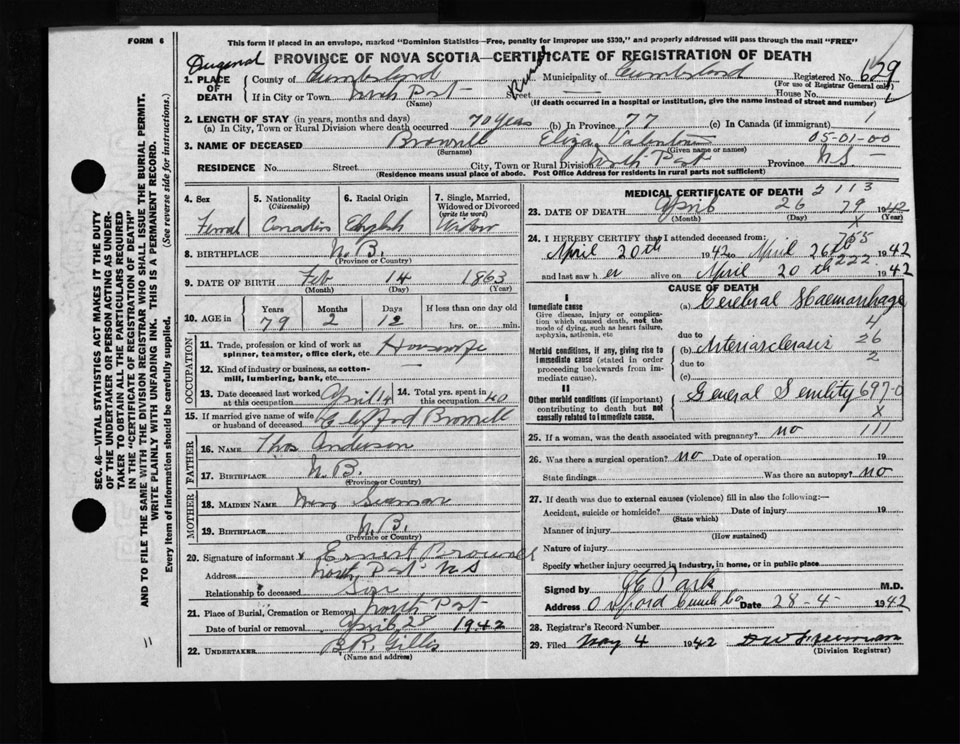 FORM 6
This form if placed in an envelope, marked "Dominion Statistics—Free, penalty for improper use $300," and properly addressed will pass through the mail "FREE"
PROVINCE OF NOVA SCOTIA—CERTIFICATE OF REGISTRATION OF DEATH
1. PLACE OF DEATH
County of Cumberland Municipality of Cumberland Registered No. 629
(For use of Registrar General only)
If in City or Town North Port Street — House No.
(Name) (If death occurred in a hospital or institution, give the name instead of street and number)
2. LENGTH OF STAY (in years, months and days)
(a) In City, Town or Rural Division where death occurred 70 years (b) In Province 77 (c) In Canada (if immigrant)
3. NAME OF DECEASED Brownell Eliza 05-01-00
(Surname) (Given name or names)
RESIDENCE No. Street City, Town or Rural Division North Port Province N S
(Residence means usual place of abode. Post Office Address for residents in rural parts not sufficient)
4. Sex 5. Nationality (Citizenship) 6. Racial Origin 7. Single, Married, Widowed or Divorced (write the word)
Femal Canadian English Widow
8. BIRTHPLACE N.B.
(Province or Country)
9. DATE OF BIRTH Feb 14 1863
(Month) (Day) (Year)
10. AGE in Years Months Days If less than one day old
79 2 12 hrs. or min.
OCCUPATION
11. Trade, profession or kind of work as spinner, teamster, office clerk, etc. Housewife
12. Kind of industry or business, as cotton-mill, lumbering, bank, etc. —
13. Date deceased last worked at this occupation April 14 14. Total yrs. spent in this occupation 40
15. If married give name of wife or husband of deceased Clifford Brownell
FATHER
16. NAME Thos Anderson
17. BIRTHPLACE N.B.
(Province or Country)
MOTHER
18. MAIDEN NAME Seaman
19. BIRTHPLACE N.B.
(Province or Country)
20. Signature of informant x Ernest Brownell
Address North Port N S
Relationship to deceased Son
21. Place of Burial, Cremation or Removal North Port
Date of burial or removal April 28 1942
22. UNDERTAKER B.R. Gillis
(Name and address)
MEDICAL CERTIFICATE OF DEATH 2113
23. DATE OF DEATH April 26 79 1942
(Month) (Day) (Year)
24. I HEREBY CERTIFY that I attended deceased from:
April 20th 1942 to April 26th 1942
and last saw h er alive on April 20th 222 1942
CAUSE OF DEATH
I
Immediate cause
Give disease, injury or complication which caused death, not the mode of dying, such as heart failure, asphyxia, asthenia, etc
(a) Cerebral Haemorrhage
4
due to
Morbid conditions, if any, giving rise to immediate cause (stated in order proceeding backwards from immediate cause).
(b) Arteriosclerosis 26
2
due to
(c)
II
Other morbid conditions (if important) contributing to death but not causally related to immediate cause.
General Senility 697-0
x
25. If a woman, was the death associated with pregnancy? no 111
26. Was there a surgical operation? no Date of operation 19
State findings Was there an autopsy? no
27. If death was due to external causes (violence) fill in also the following:—
Accident, suicide or homicide? Date of injury 19
(State which)
Manner of injury
(How sustained)
Nature of injury
Specify whether injury occurred in industry, in home, or in public place
Signed by Park M.D.
Address Oxford Date 28-4- 1942
28. Registrar's Record Number
29. Filed May 4 1942 Freeman
(Division Registrar)
SEC. 46—VITAL STATISTICS ACT MAKES IT THE DUTY
OF THE UNDERTAKER OR PERSON ACTING AS UNDER-
TAKER TO OBTAIN ALL THE PARTICULARS REQUIRED
IN THE "CERTIFICATE OF REGISTRATION OF DEATH"
AND TO FILE THE SAME WITH THE DIVISION REGISTRAR WHO SHALL ISSUE THE BURIAL PERMIT.
WRITE PLAINLY WITH UNFADING INK. THIS IS A PERMANENT RECORD.
Every item of information should be carefully supplied. (See reverse side for instructions.)